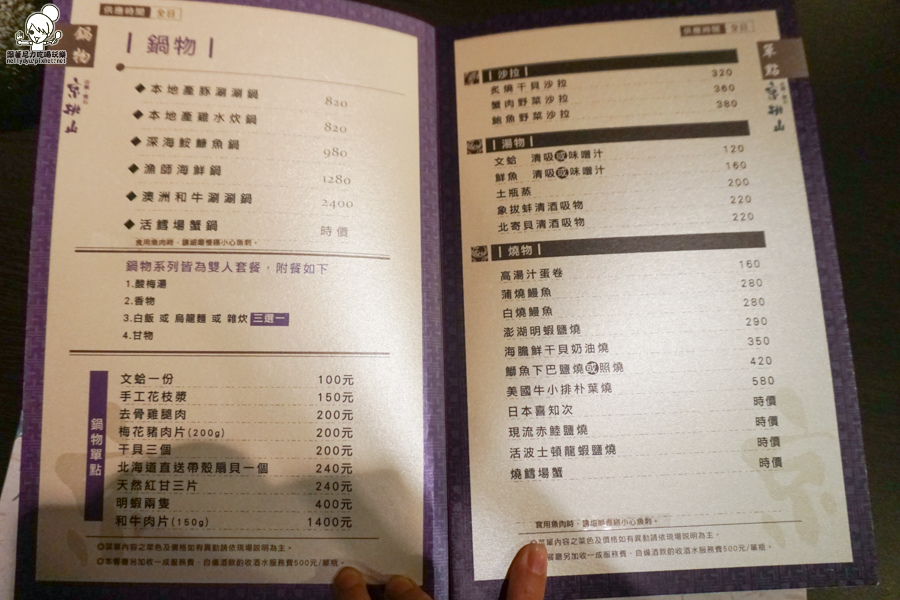 跟著尼力吃喝玩樂
nellydyu.pixnet.net
供應時間 全日
鍋物
鍋物
◆本地產豚涮涮鍋 820
◆本地產雞水炊鍋 820
◆深海鮟鱇魚鍋 980
◆漁師海鮮鍋 1280
◆澳洲和牛涮涮鍋 2400
◆活鱈場蟹鍋 時價
食用魚肉時，請細嚼慢嚥小心魚刺。
鍋物系列皆為雙人套餐，附餐如下
1.酸梅湯
2.香物
3.白飯 或 烏龍麵 或 雜炊 三選一
4.甘物
鍋物單點
文蛤一份 100元
手工花枝漿 150元
去骨雞腿肉 200元
梅花豬肉片(200g) 200元
干貝三個 200元
北海道直送帶殼扇貝一個 240元
天然紅甘三片 240元
明蝦兩隻 400元
和牛肉片(150g) 1400元
◎菜單內容之菜色及價格如有異動請依現場說明為主。
◎本餐廳另加收一成服務費，自備酒款酌收酒水服務費500元/單瓶。
供應時間 全日
單點
沙拉
炙燒干貝沙拉 320
蟹肉野菜沙拉 360
鮑魚野菜沙拉 380
湯物
文蛤 清吸或味噌汁 120
鮮魚 清吸或味噌汁 160
土瓶蒸 200
象拔蚌清酒吸物 220
北寄貝清酒吸物 220
燒物
高湯汁蛋卷 160
蒲燒鰻魚 280
白燒鰻魚 280
澎湖明蝦鹽燒 290
海膽鮮干貝奶油燒 350
鰤魚下巴鹽燒或照燒 420
美國牛小排朴葉燒 580
日本喜知次 時價
現流赤鯥鹽燒 時價
活波士頓龍蝦鹽燒 時價
燒鱈場蟹 時價
食用魚肉時，請細嚼慢嚥小心魚刺。
◎菜單內容之菜色及價格如有異動請依現場說明為主。
餐廳另加收一成服務費，自備酒款酌收酒水服務費500元/單瓶。